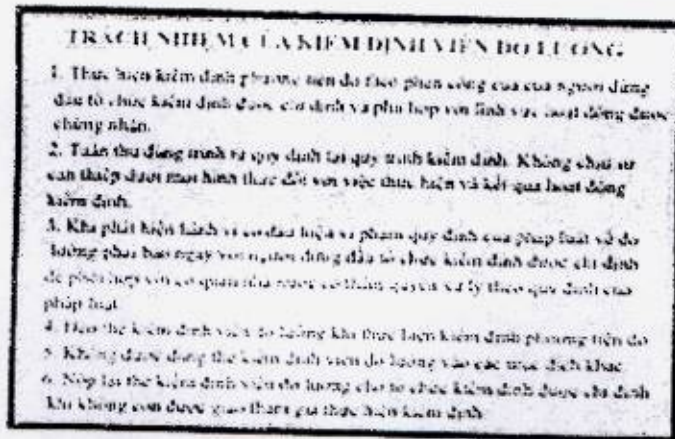 TRÁCH NHIỆM CỦA KIỂM ĐỊNH VIÊN ĐO LƯỜNG
1. Thực hiện kiểm định phương tiện đo theo phân công của của người đứng
đầu tổ chức kiểm định được chỉ định và phù hợp với lĩnh vực hoạt động được
chứng nhận.
2. Tuân thủ đúng trình tự quy định tại quy trình kiểm định. Không chịu sự
can thiệp dưới mọi hình thức đối với việc thực hiện và kết quả hoạt động
kiểm định.
3. Khi phát hiện hành vi có dấu hiệu vi phạm quy định của pháp luật về đo
lường phải báo ngay với người đứng đầu tổ chức kiểm định được chỉ định
để phối hợp với cơ quan nhà nước có thẩm quyền xử lý theo quy định của
pháp luật
4. Đeo thẻ kiểm định viên đo lường khi thực hiện kiểm định phương tiện đo
5. Không được dùng thẻ kiểm định viên đo lường vào các mục đích khác.
6. Nộp lại thẻ kiểm định viên đo lường cho tổ chức kiểm định được chỉ định
khi không còn được giao tham gia thực hiện kiểm định.